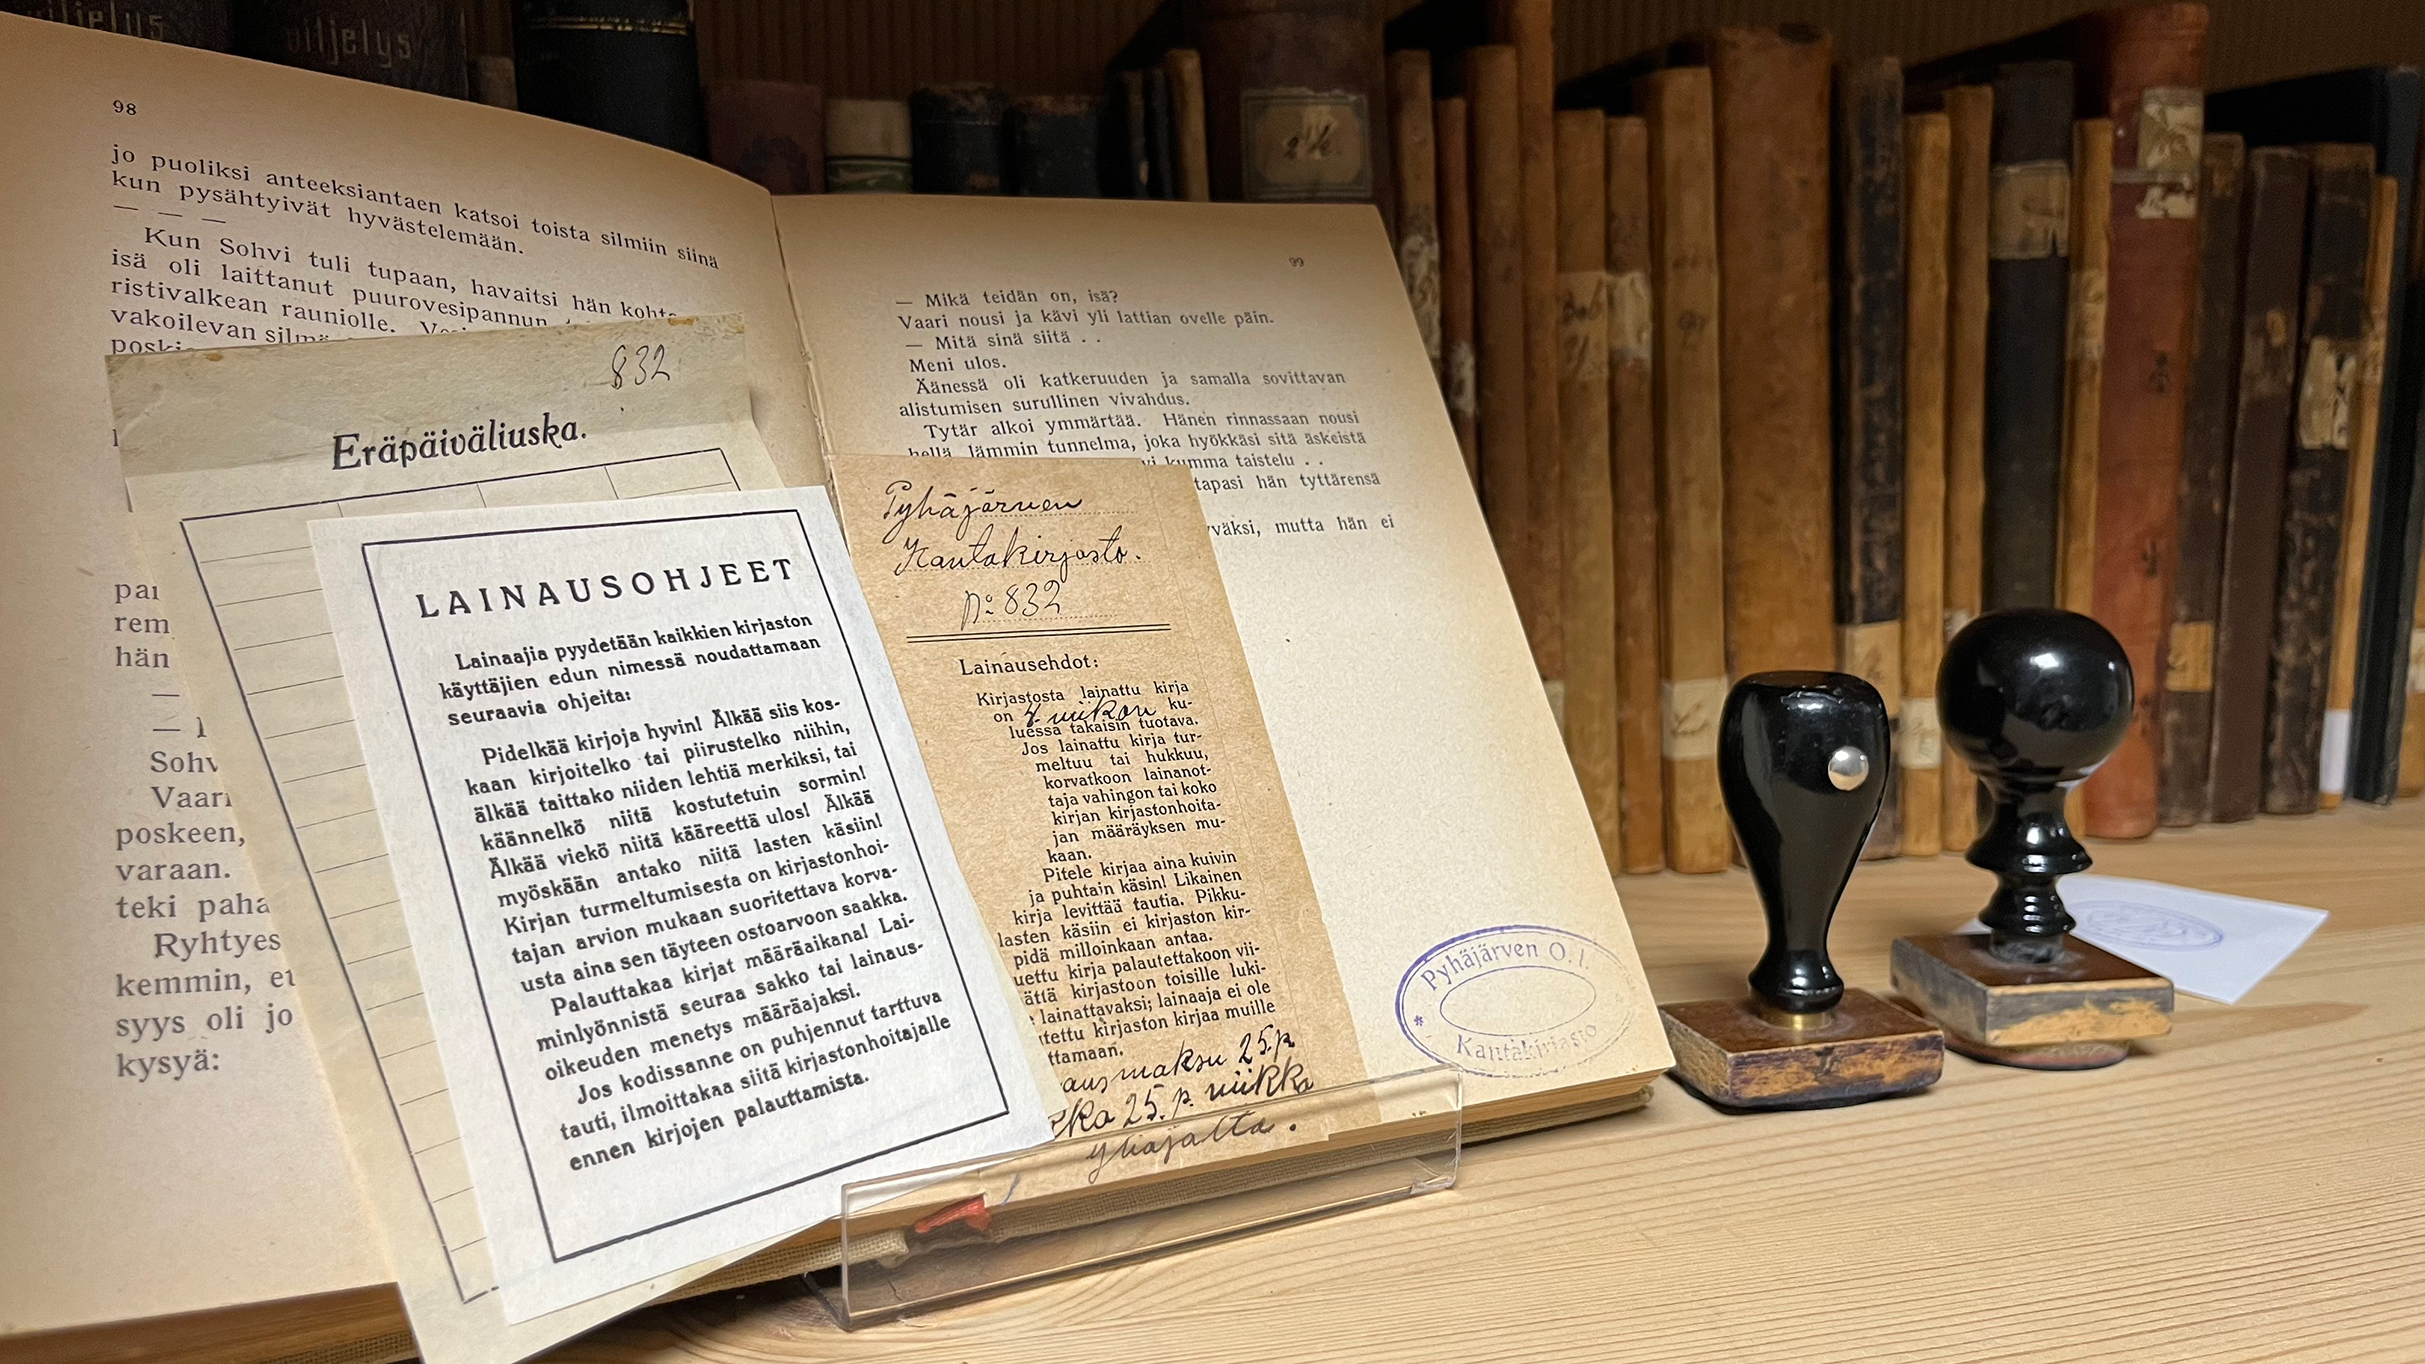 viljelys
98
jo puoliksi anteeksiantaen katsoi toista silmiin siinä
kun pysähtyivät hyvästelemään.
— — —
Kun Sohvi tuli tupaan, havaitsi hän
isä oli laittanut puurovesipannun
ristivalkean rauniolle.
vakoilevan
hän
—
—
Sohv
Vaari
poskeen,
varaan.
teki paha
Ryhtyes
kemmin, et
syys oli jo
kysyä:
832
Eräpäiväliuska.
LAINAUSOHJEET
Lainaajia pyydetään kaikkien kirjaston
käyttäjien edun nimessä noudattamaan
seuraavia ohjeita:
Pidelkää kirjoja hyvin! Älkää siis kos-
kaan kirjoitelko tai piirustelko niihin,
älkää taittako niiden lehtiä merkiksi, tai
käännelkö niitä kostutetuin sormin!
Älkää viekö niitä kääreettä ulos! Älkää
myöskään antako niitä lasten käsiin!
Kirjan turmeltumisesta on kirjastonhoi-
tajan arvion mukaan suoritettava korva-
usta aina sen täyteen ostoarvoon saakka.
Palauttakaa kirjat määräaikana! Lai-
minlyönnistä seuraa sakko tai lainaus-
oikeuden menetys määräajaksi.
Jos kodissanne on puhjennut tarttuva
tauti, ilmoittakaa siitä kirjastonhoitajalle
ennen kirjojen palauttamista.
99
— Mikä teidän on, isä?
Vaari nousi ja kävi yli lattian ovelle päin.
— Mitä sinä siitä . .
Meni ulos.
Äänessä oli katkeruuden ja samalla sovittavan
alistumisen surullinen vivahdus.
Tytär alkoi ymmärtää. Hänen rinnassaan nousi
hellä, lämmin tunnelma, joka hyökkäsi sitä äskeistä
kumma taistelu . .
tapasi hän tyttärensä
väksi, mutta hän ei
Pyhäjärven
Kantakirjasto.
No 832
Lainausehdot:
Kirjastosta lainattu kirja
on 4 viikon ku-
luessa takaisin tuotava.
Jos lainattu kirja tur-
meltuu tai hukkuu,
korvatkoon lainanot-
taja vahingon tai koko
kirjan kirjastonhoita-
jan määräyksen mu-
kaan.
Pitele kirjaa aina kuivin
ja puhtain käsin! Likainen
kirja levittää tautia. Pikku-
lasten käsiin ei kirjaston kir-
pidä milloinkaan antaa.
uettu kirja palautettakoon vii-
ättä kirjastoon toisille luki-
lainattavaksi; lainaaja ei ole
tettu kirjaston kirjaa muille
ttamaan.
ausmaksu 25.p
kko 25.p. viikko
yliajalta.
Pyhäjärven O. l.
Kantakirjasto